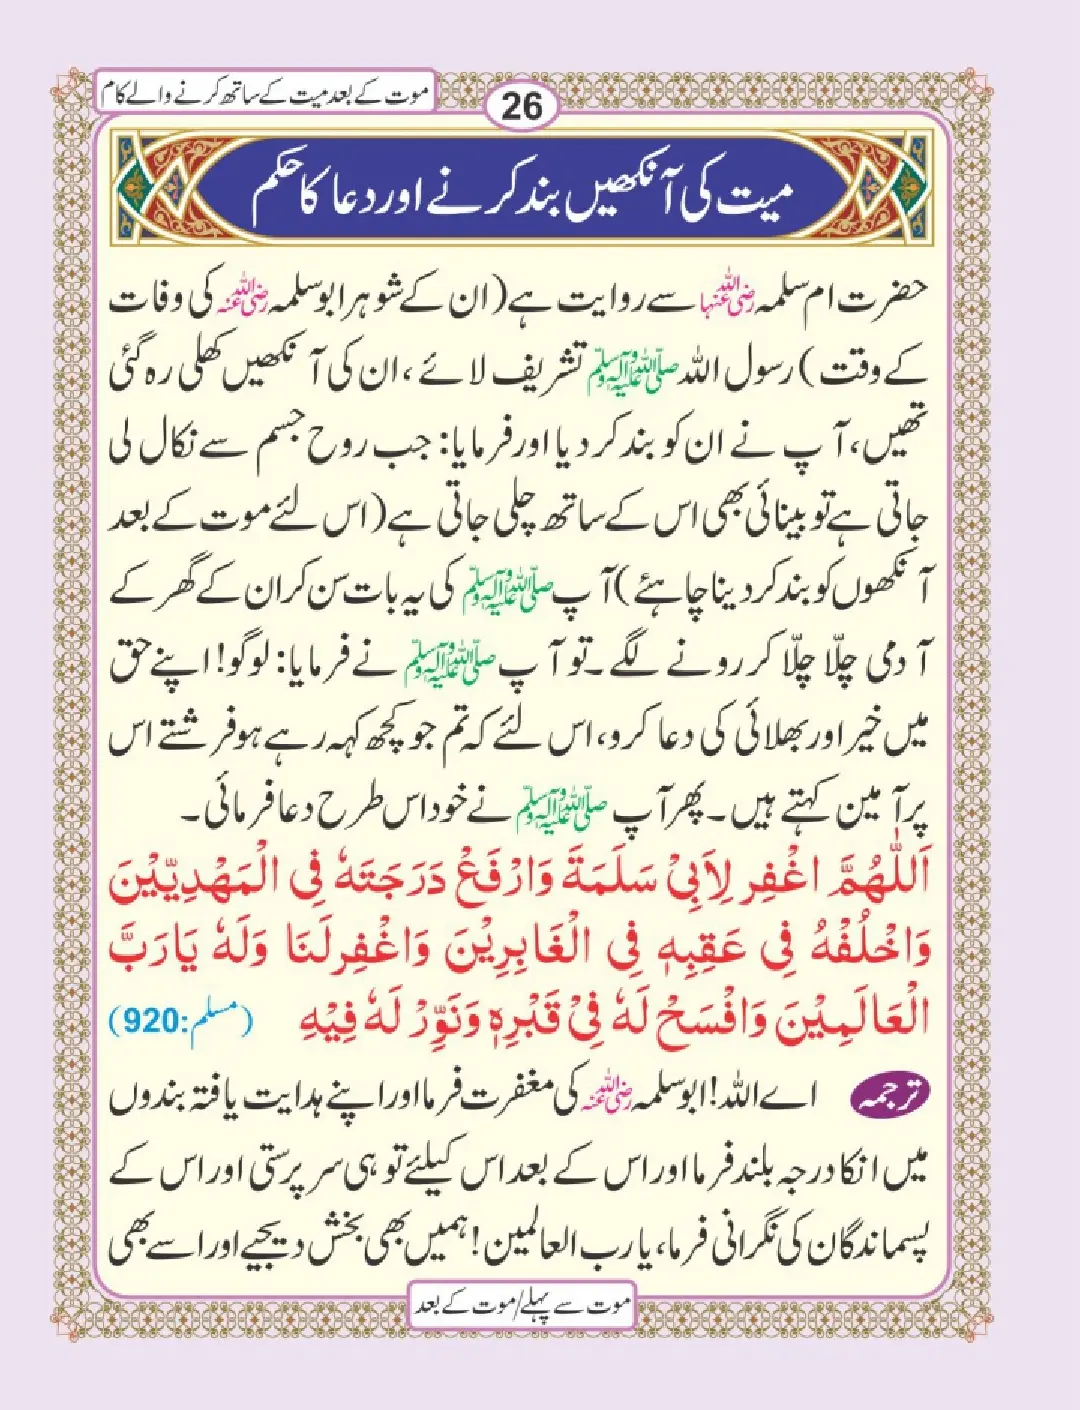 موت کے بعد میت کے ساتھ کرنے والے کام
26
میت کی آنکھیں بند کرنے اور دعا کا حکم
حضرت ام سلمہ رضی اللہ عنہا سے روایت ہے (ان کے شوہر ابو سلمہ رضی اللہ عنہ کی وفات
کے وقت) رسول اللہ صلی اللہ علیہ وآلہ وسلم تشریف لائے، ان کی آنکھیں کھلی رہ گئی
تھیں، آپ نے ان کو بند کر دیا اور فرمایا: جب روح جسم سے نکال لی
جاتی ہے تو بینائی بھی اس کے ساتھ چلی جاتی ہے (اس لئے موت کے بعد
آنکھوں کو بند کر دینا چاہئے) آپ صلی اللہ علیہ وآلہ وسلم کی یہ بات سن کر ان کے گھر کے
آدمی چلّا چلّا کر رونے لگے۔ تو آپ صلی اللہ علیہ وآلہ وسلم نے فرمایا: لوگو! اپنے حق
میں خیر اور بھلائی کی دعا کرو، اس لئے کہ تم جو کچھ کہہ رہے ہو فرشتے اس
پر آمین کہتے ہیں۔ پھر آپ صلی اللہ علیہ وآلہ وسلم نے خود اس طرح دعا فرمائی۔
اَللّٰهُمَّ اغْفِر لِاَبِیْ سَلَمَةَ وَارْفَعْ دَرَجَتَهٗ فِی الْمَهْدِیِّیْنَ
وَاخْلُفْهُ فِی عَقِبِهٖ فِی الْغَابِرِیْنَ وَاغْفِرلَنَا وَلَهٗ یَارَبَّ
الْعَالَمِیْنَ وَافْسَحْ لَهٗ فِیْ قَبْرِهٖ وَنَوِّرْ لَهٗ فِیْهِ (مسلم:920)
ترجمہ اے اللہ! ابو سلمہ رضی اللہ عنہ کی مغفرت فرما اور اپنے ہدایت یافتہ بندوں
میں انکا درجہ بلند فرما اور اس کے بعد اس کیلئے تو ہی سرپرستی اور اس کے
پسماندگان کی نگرانی فرما، یارب العالمین! ہمیں بھی بخش دیجیے اور اسے بھی
موت سے پہلے/موت کے بعد